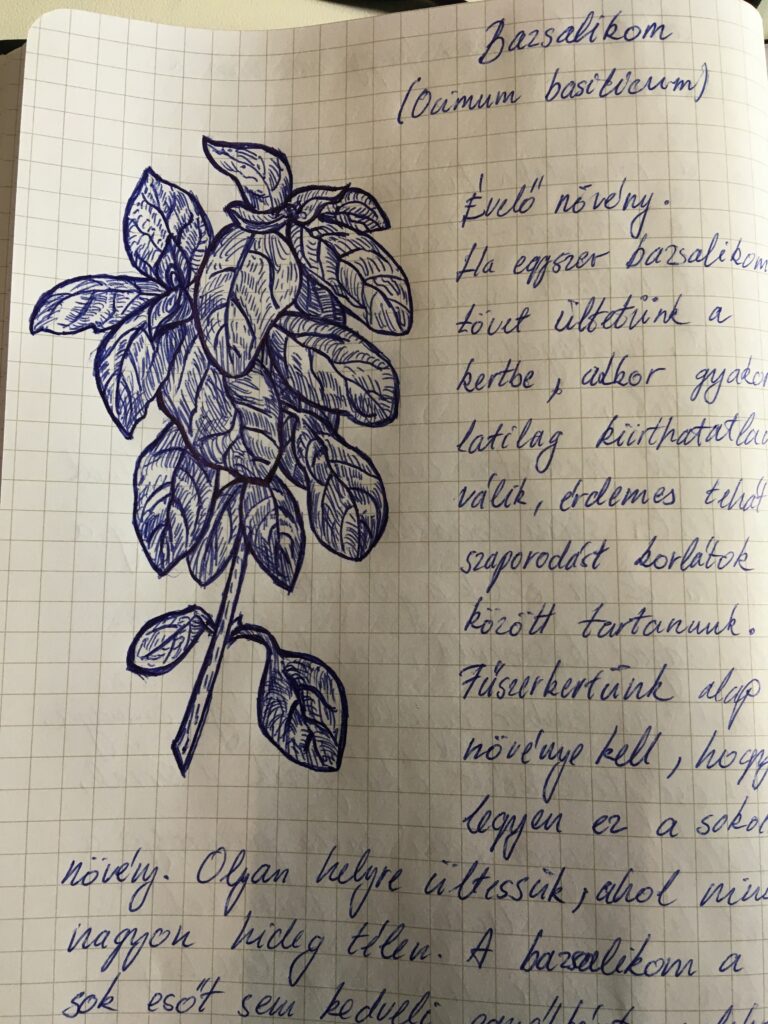 Bazsalikom
(Ocimum basilicum)
Évelő növény.
Ha egyszer bazsalikom
tövet ültetünk a
kertbe, akkor gyakor
latilag kiirthatatlan
válik, érdemes tehát
szaporodást korlátok
között tartanunk.
Fűszerkertünk alap
növénye kell, hogy
legyen ez a sokol
növény. Olyan helyre ültessük, ahol nin
nagyon hideg télen. A bazsalikom a
sok esőt sem kedveli